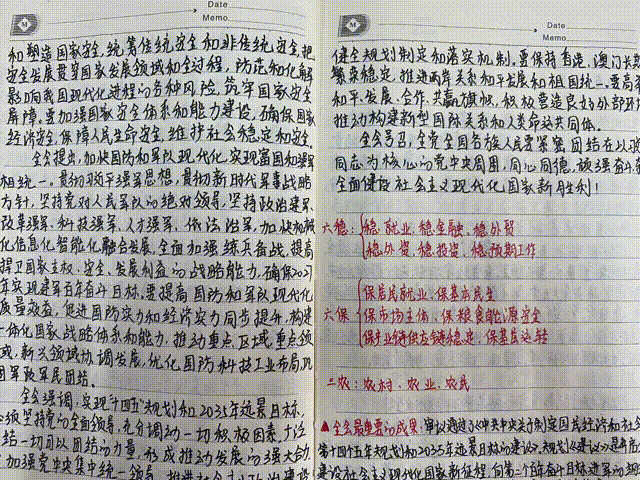 Date
Memo
和塑造国家安全,统筹传统安全和非传统安全,把
安全发展贯穿国家发展领域和全过程,防范和化解
影响我国现代化进程的各种风险,筑牢国家安全
屏障。要加强国家安全体系和能力建设,确保国家
经济安全,保障人民生命安全,维护社会稳定和安全。
全会提出,加快国防和军队现代化,实现富国和强军
相统一。贯彻习近平强军思想,贯彻新时代军事战略
方针,坚持党对人民军队的绝对领导,坚持政治建军、
改革强军、科技强军、人才强军、依法治军,加快机械
化信息化智能化融合发展,全面加强练兵备战,提高
捍卫国家主权、安全、发展利益的战略能力,确保2027
年实现建军百年奋斗目标。要提高国防和军队现代化
质量效益,促进国防实力和经济实力同步提升,构建
一体化国家战略体系和能力,推动重点区域、重点领
域、新兴领域协调发展,优化国防科技工业布局,巩
固军政军民团结。
全会强调,实现“十四五”规划和2035年远景目标,
必须坚持党的全面领导,充分调动一切积极因素,广泛
团结一切可以团结的力量,形成推动发展的强大合力
加强党中央集中统一领导,推进社会主义政治建设
Date
Memo
健全规划制定和落实机制。要保持香港、澳门长期
繁荣稳定,推进两岸关系和平发展和祖国统一。要高举
和平、发展、合作、共赢旗帜,积极营造良好外部环
推动构建新型国际关系和人类命运共同体。
全会号召,全党全国各族人民要紧密团结在以习近
同志为核心的党中央周围,同心同德,顽强奋斗,
全面建设社会主义现代化国家新胜利!
六稳: 稳就业、稳金融、稳外贸
稳外资、稳投资、稳预期工作
保居民就业、保基本民生
六保 保市场主体、保粮食能源安全
保产业链供应链稳定、保基层运转
三农:农村、农业、农民
▲全会最重要的成果,审议通过《中共中央关于制定国民经济和社会
第十四个五年规划和2035年远景目标的建议》,规划《建议》是开启
建设社会主义现代化国家新征程、向第二个百年奋斗目标进军的纲